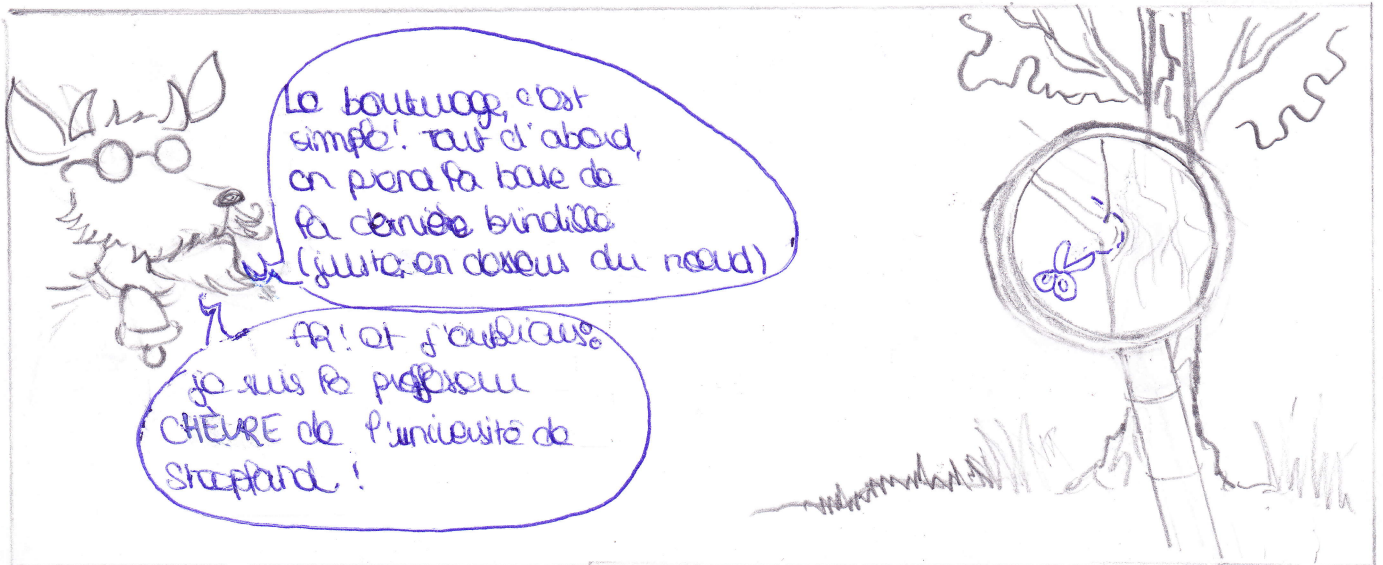 Le bouturage, c'est
simple! Tout d'abord,
on prend la base de
la dernière brindille
(juste en dessous du noeud)
Ah! et j'oubliais:
je suis le professeur
CHÈVRE de l'université de
Sheepland!